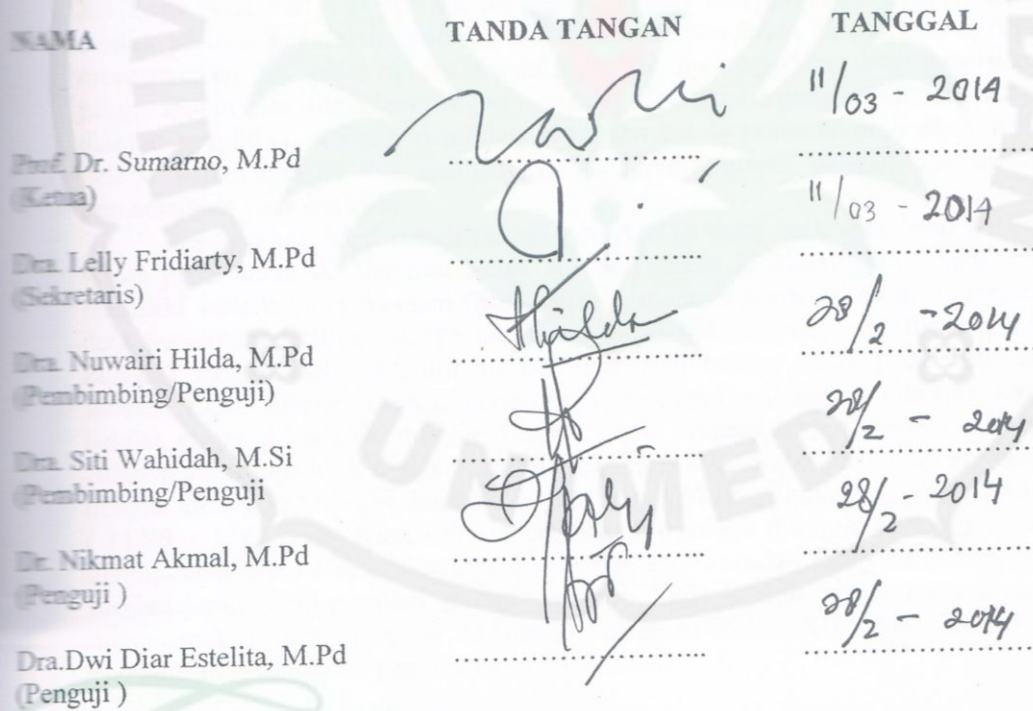 NAMA TANDA TANGAN TANGGAL
11/03 - 2014
Prof. Dr. Sumarno, M.Pd ..............................
(Ketua)
11/03 - 2014
Dra. Lelly Fridiarty, M.Pd ..............................
(Sekretaris)
Hilda 28/2 - 2014
Dra. Nuwairi Hilda, M.Pd ..............................
(Pembimbing/Penguji)
28/2 - 2014
Dra. Siti Wahidah, M.Si ..............................
(Pembimbing/Penguji
28/2 - 2014
Dr. Nikmat Akmal, M.Pd ..............................
(Penguji )
28/2 - 2014
Dra.Dwi Diar Estelita, M.Pd ..............................
(Penguji )
UNIMED